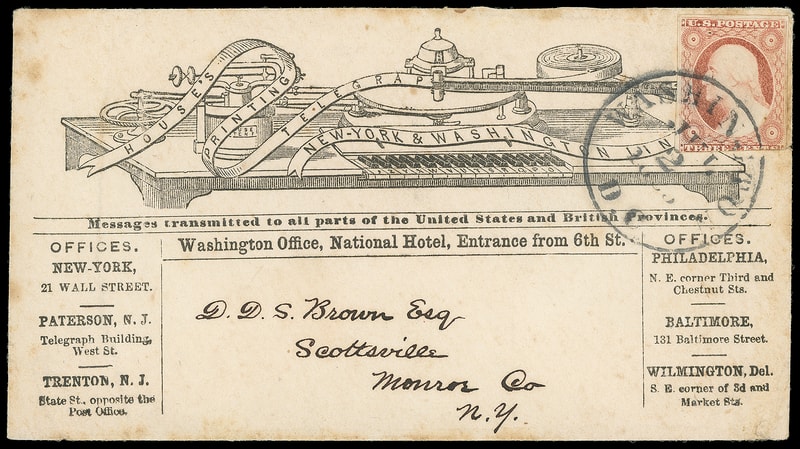 HOUSE'S
PRINTING
TELEGRAP
NEW-YORK & WASHINGTON LIN
U.S. POSTAGE
THREE CENTS
WASHINGTON
D.C.
Messages transmitted to all parts of the United States and British Provinces.
Washington Office, National Hotel, Entrance from 6th St.
OFFICES.
NEW-YORK,
21 WALL STREET.
PATERSON, N. J.
Telegraph Building,
West St.
TRENTON, N. J.
State St., opposite the
Post Office.
D. D. S. Brown Esq
Scottsville
Monroe Co
N.Y.
OFFICES.
PHILADELPHIA,
N. E. corner Third and
Chestnut Sts.
BALTIMORE,
131 Baltimore Street.
WILMINGTON, Del.
S. E. corner of 3d and
Market Sts.